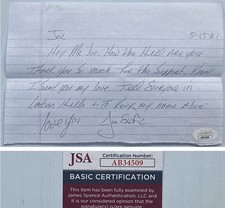 Joe
5-15-21
Hey Mr Joe. How the Hell are you
Thank you so much for the support, know
I send you my love. Tell Everyone in
Hello & to keep my name Alive
love you Joe
JSA
Certification Number:
AB34509
BASIC CERTIFICATION
This item has been fully examined by
James Spence Authentication and it
is our considered opinion that the
signature(s) is are genuine.